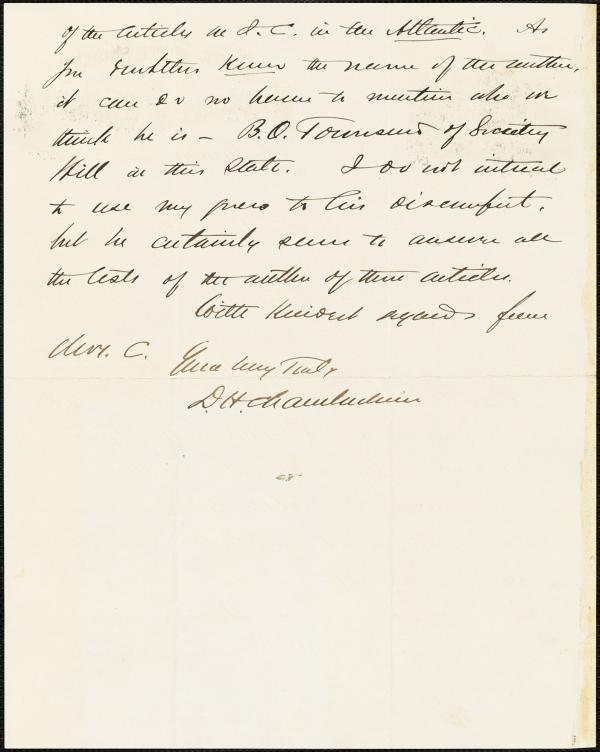 of the articles on S. C. in the Atlantic. As
you doubtless know the name of the author,
it can do no harm to mention who we
think he is – B. O. Townsend of Society
Hill in this State. I do not intend
to use my guess to his discomfort,
but he certainly seems to answer all
the tests of the author of these articles.
With kindest regards from
Mrs. C. Yours very truly
D. H. Chamberlain